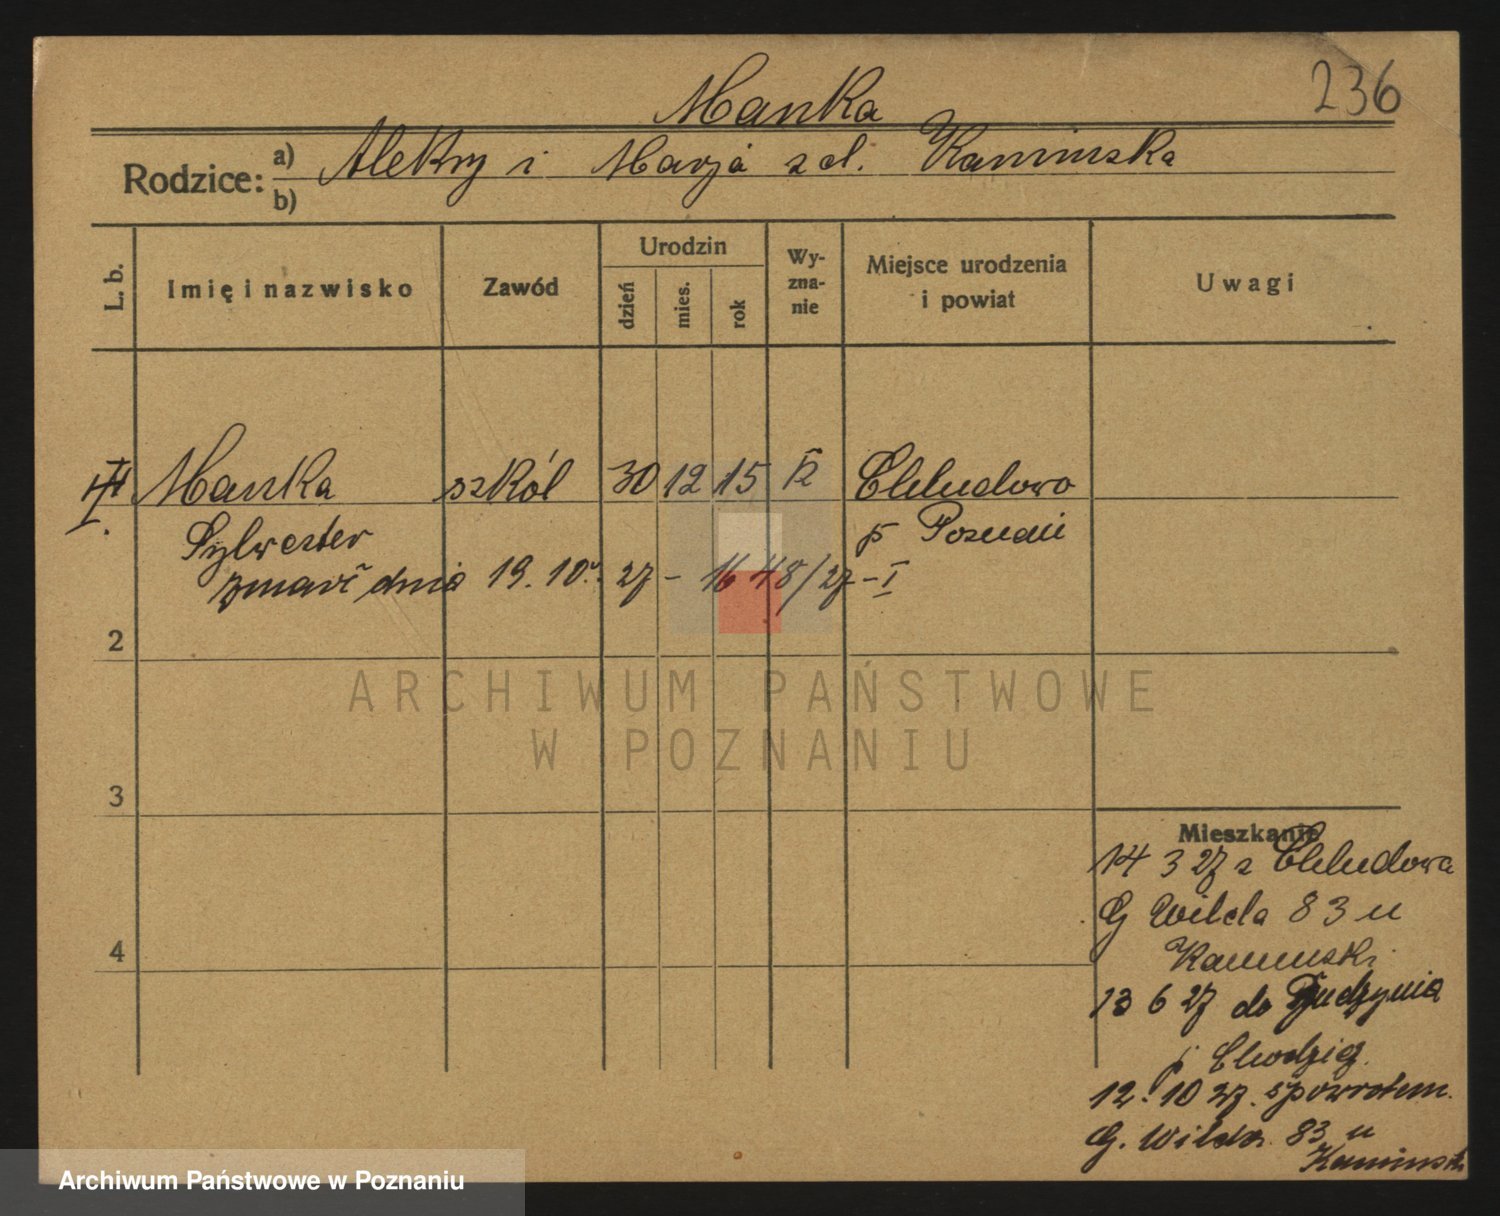 236
Manka
Rodzice: a) Aleksy i Marja z d. Kamińska
b)
L. b. Imię i nazwisko Zawód Urodzin dzień mies. rok Wyznanie Miejsce urodzenia i powiat Uwagi
Manka szkól 30 12 15 k Chludowo
Sylwester p Poznań
zmarł dnia 19. 10. 27 - 1648/27 - I
2
3
4
Mieszkanie
14 3 27 z Chludowa
G Wilda 83 u
Kamiński
13 6 27 do
p Chodzież
12. 10 27. spowrotem.
G. Wilda 83 u
Kamiński
ARCHIWUM PAŃSTWOWE
W POZNANIU
Archiwum Państwowe w Poznaniu